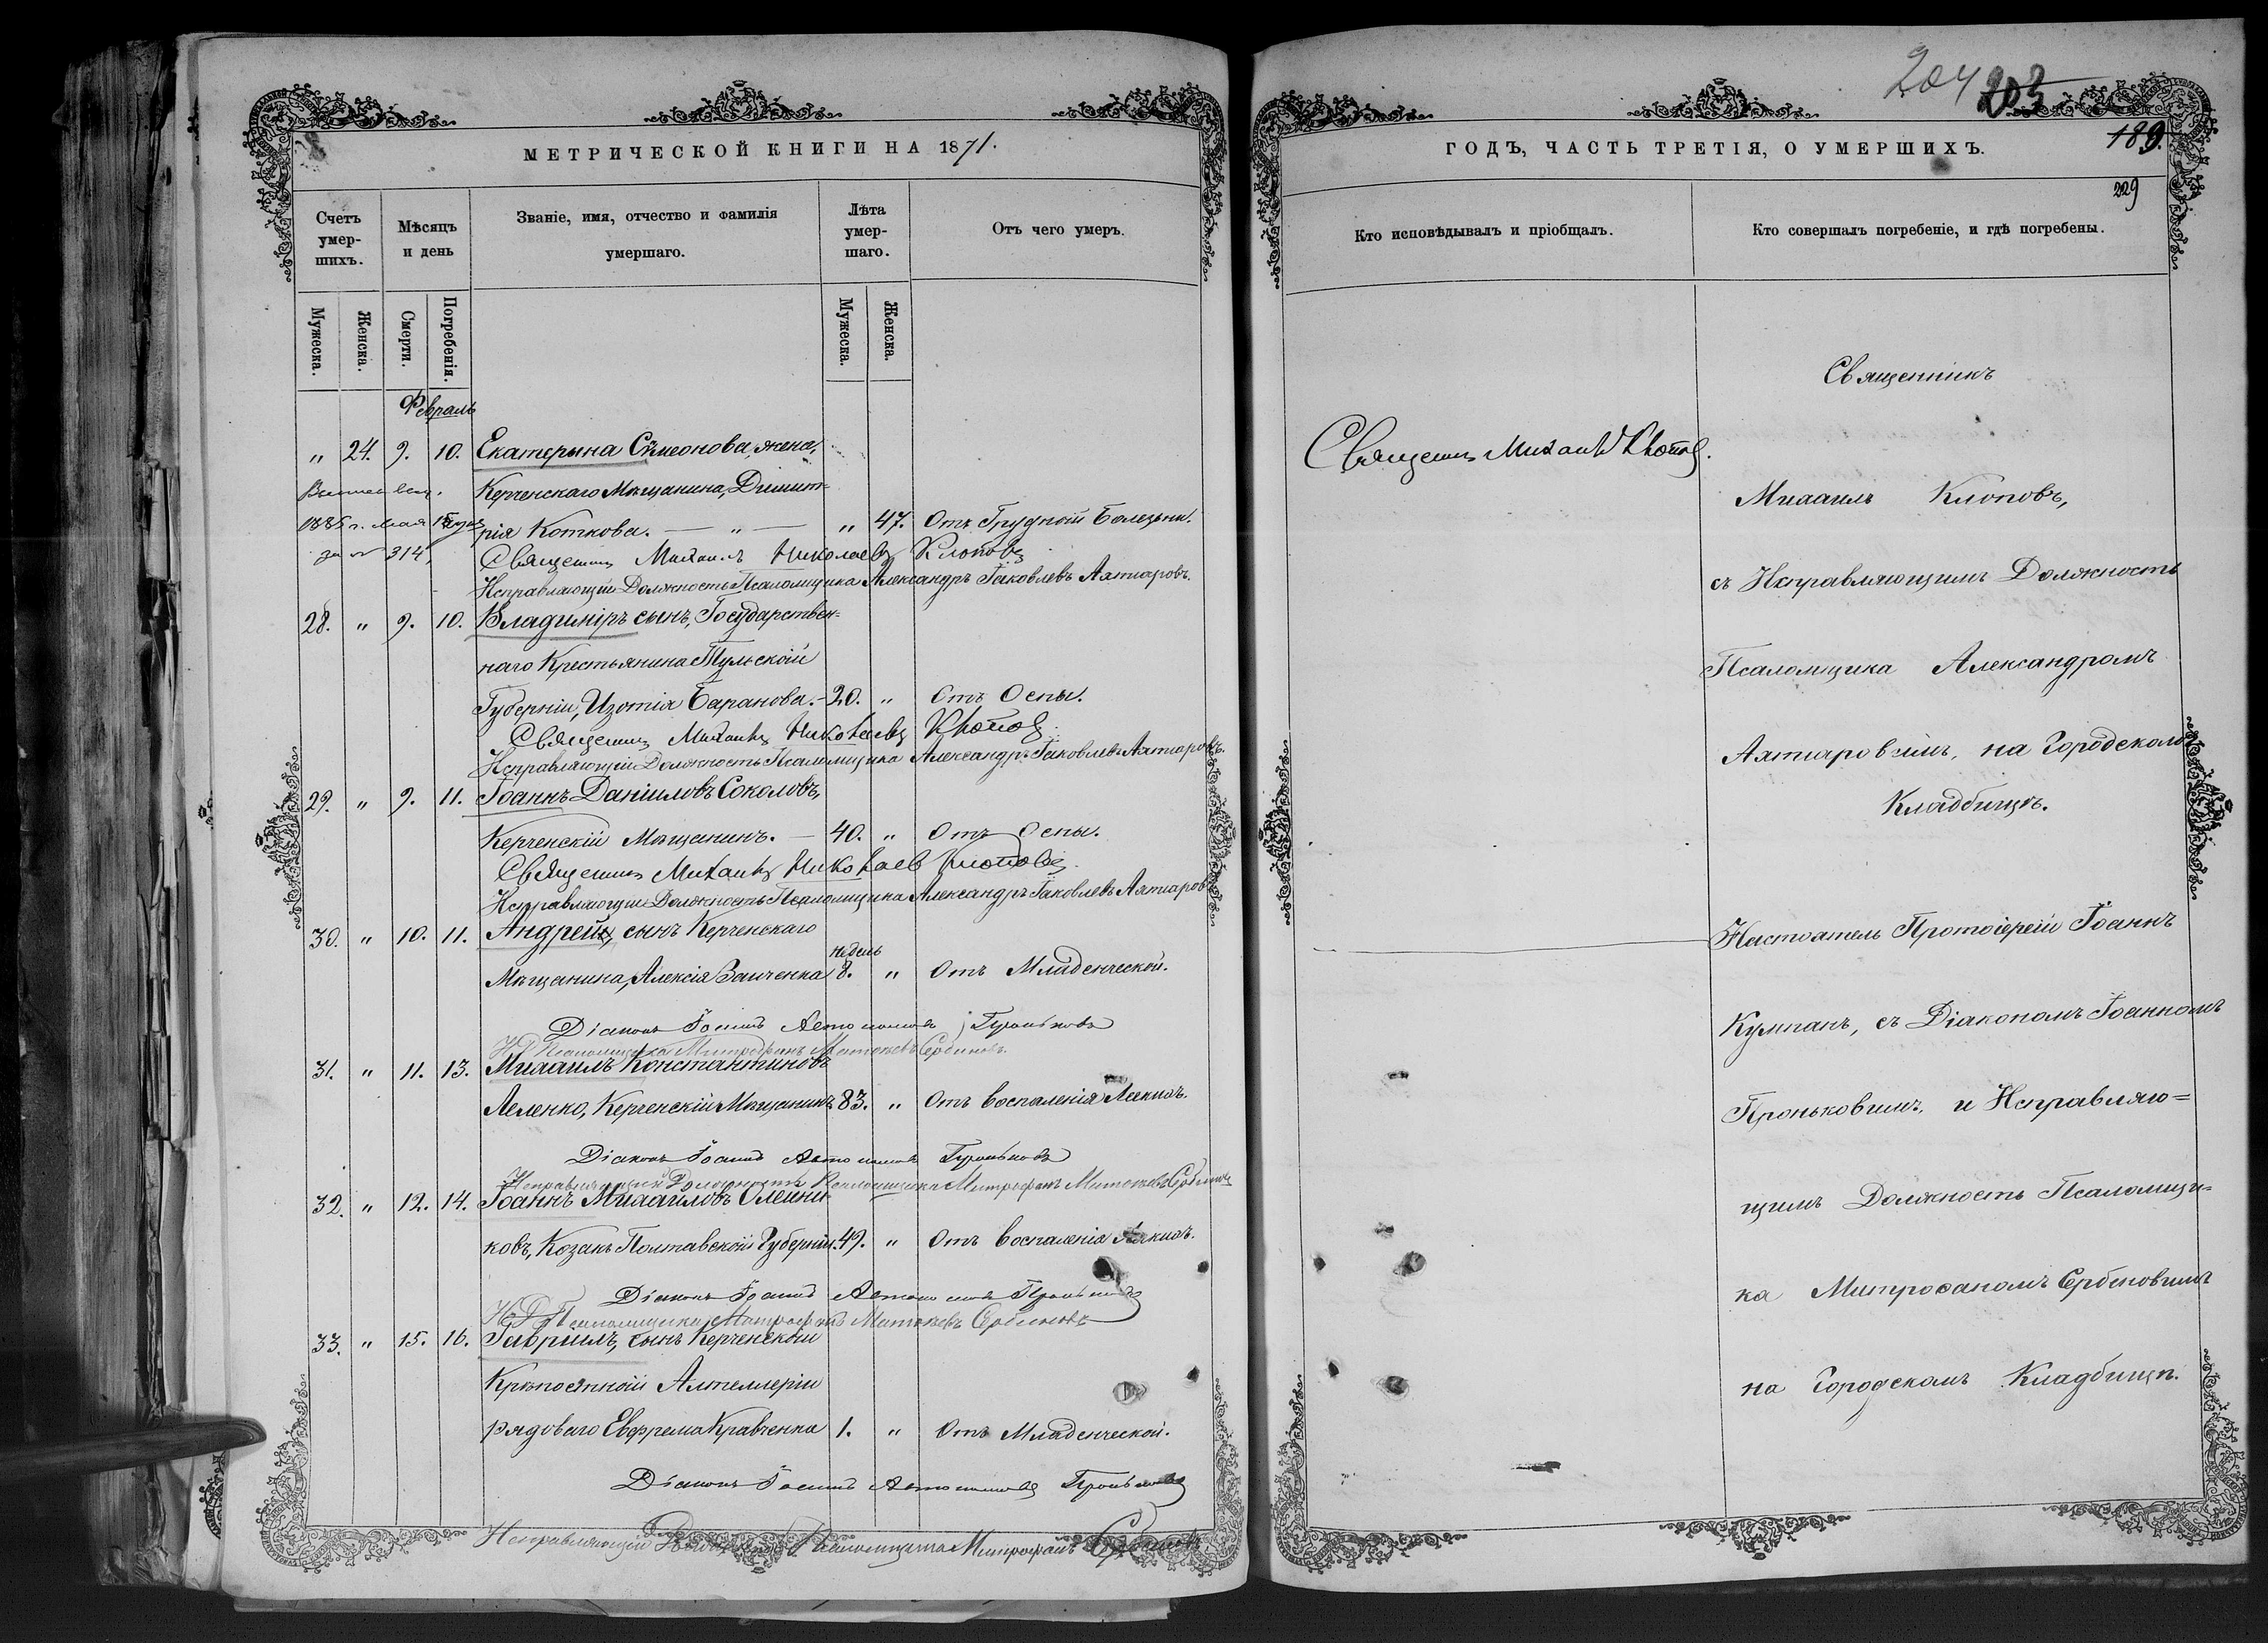 МЕТРИЧЕСКОЙ КНИГИ НА 1871.
Счетъ умер-шихъ.
Мѣсяцъ и день
Званіе, имя, отчество и фамилія умершаго.
Лѣта умер-шаго.
Отъ чего умеръ.
Мужеска.
Женска.
Смерти.
Погребенія.
Мужеска.
Женска.
Февраль
" 24. 9. 10. Екатерына Сѵмеонова, жена,
Керченскаго Мѣщанина, Димит-
1885 г. Мая
рія Коткова. — " — " 47. Отъ Грудной Болезни.
за № 314,
Священникъ Михаилъ Николаевъ Клоповъ
Исправляющій Должность Псаломщика Александръ Іаковлевъ Ахтыаровъ.
28. " 9. 10. Владиміръ сынъ, Государствен-
наго Крестьянина Тульской
Губерніи, Изотія Баранова. - 20. " Отъ Оспы.
Священникъ Михаилъ Николаевъ Клоповъ
Исправляющій Должность Псаломщика Александръ Іаковлевъ Ахтыаровъ.
29. " 9. 11. Іоаннъ Даніиловъ Соколовъ,
Керченскій Мѣщанинъ. — 40. " Отъ Оспы.
Священникъ Михаилъ Николаевъ Клоповъ
Исправляющій Должность Псаломщика Александръ Іаковлевъ Ахтыаровъ
30. " 10. 11. Андрей, сынъ Керченскаго
недель
Мѣщанина, Алексія Заиченка 8. " Отъ Младенческой.
Діаконъ Іоаннъ Автономовъ Проньковъ
И. Д. Псаломщика Митрофанъ Матѳеевъ Сербиновъ.
31. " 11. 13. Михаилъ Константиновъ
Леленко, Керченскій Мѣщанинъ 83. " Отъ воспаленія Легкихъ.
Діаконъ Іоаннъ Автономовъ Проньковъ
Исправляющій Должность Псаломщика Митрофанъ Матѳеевъ Сербиновъ
32. " 12. 14. Іоаннъ Михаиловъ Олейни-
ковъ, Козакъ Полтавской Губерніи. 49. " Отъ воспаленія Легкихъ.
Діаконъ Іоаннъ Автономовъ Проньковъ
И. Д. Псаломщика Митрофанъ Матѳеевъ Сербиновъ
33. " 15. 16. Гавриилъ, сынъ Керченской
Крѣпостной Алтеллеріи
рядоваго Евфрема Кравченка 1. " Отъ Младенческой.
Діаконъ Іоаннъ Автономовъ Проньковъ
Исправляющій Должность Псаломщика Митрофанъ Сербиновъ
204 203
189.
ГОДЪ, ЧАСТЬ ТРЕТІЯ, О УМЕРШИХЪ.
229
Кто исповѣдывалъ и пріобщалъ.
Кто совершалъ погребеніе, и гдѣ погребены.
Священникъ
Священникъ Михаилъ Клоповъ.
Михаилъ Клоповъ,
съ Исправляющимъ Должность
Псаломщика Александромъ
Ахтыаровымъ, на Городскомъ
Кладбищѣ.
Настоятель Протоіерей Іоаннъ
Кумпанъ, съ Діакономъ Іоанномъ
Проньковымъ, и Исправляю=
щимъ Должность Псаломщи=
ка Митрофаномъ Сербиновымъ
на Городскомъ Кладбищѣ.